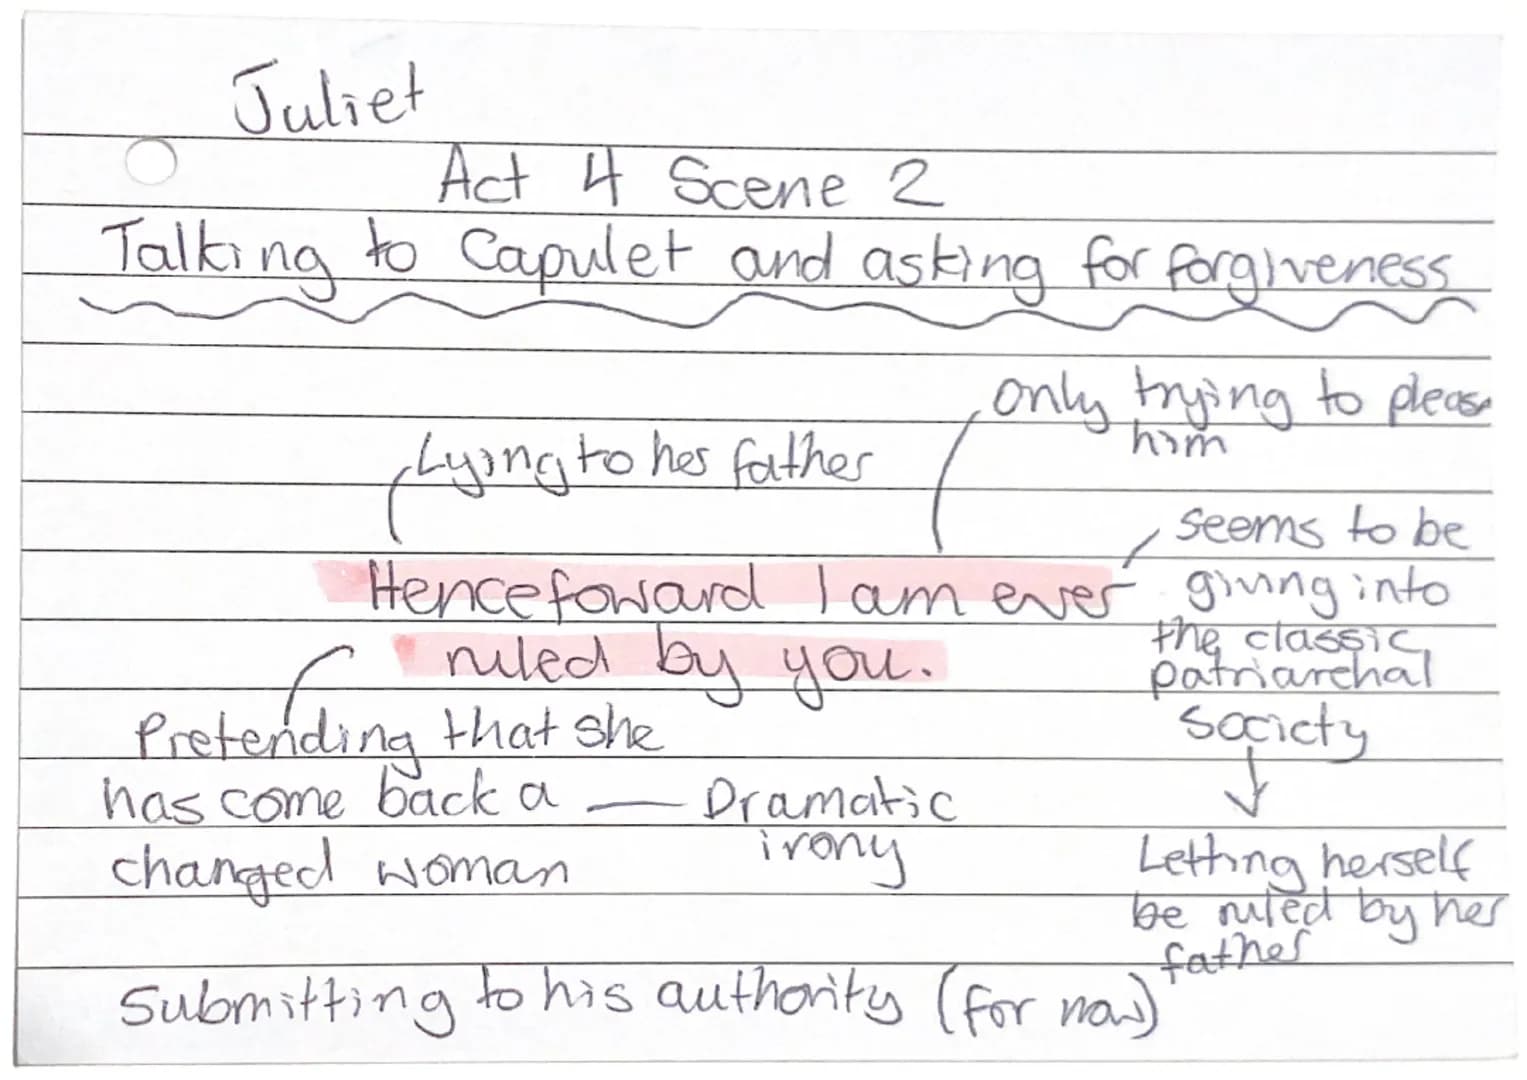 Juliet
Act 4 Scene 2
Talking to Capulet and asking for forgiveness
only trying to please
him
Lying to her father
seems to be
giving into
the classic
patriarchal
society
Henceforward I am ever
ruled by you.
Pretending that she
has come back a — Dramatic
irony
changed woman
Letting herself
be ruled by her
father
Submitting to his authority (for now)